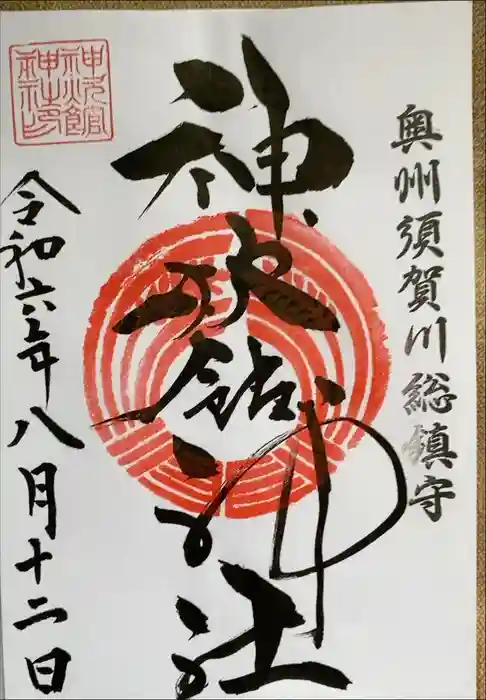 奥州須賀川総鎮守
神炊館神社
令和六年八月十二日